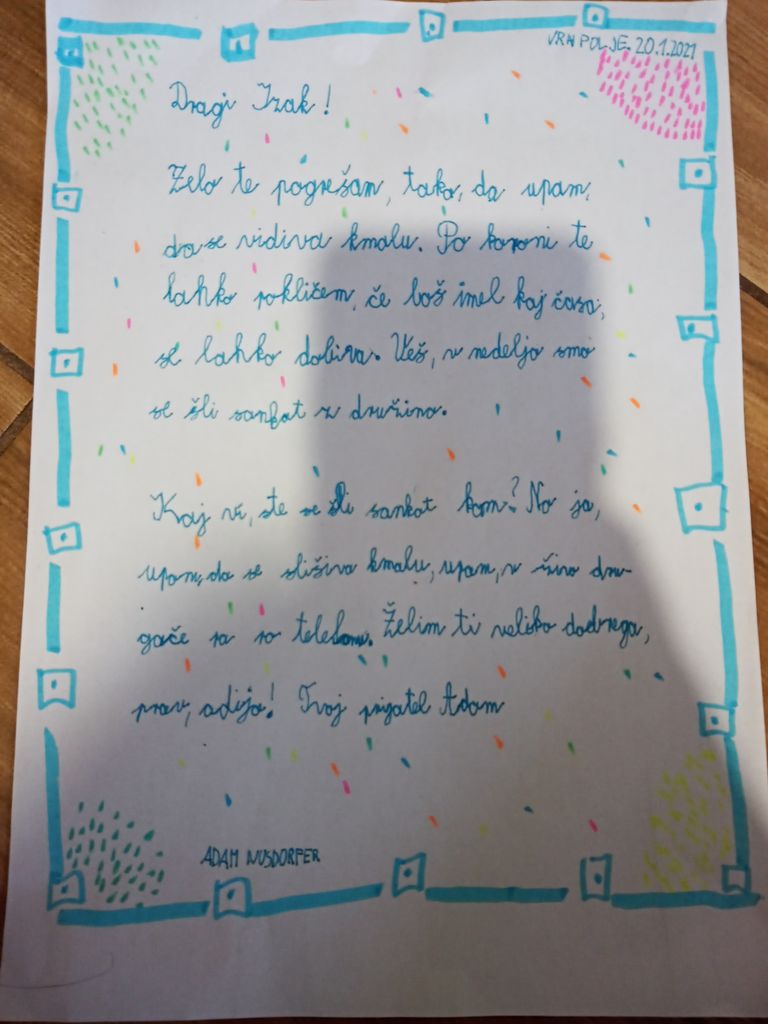 VRH POLJE, 20.1.2021
Dragi Izak!
Zelo te pogrešam, tako, da upam,
da se vidiva kmalu. Po koroni te
lahko pokličem, če boš imel kaj časa,
se lahko dobiva. Veš, v nedeljo smo
se šli sankat z družino.
Kaj vi, ste se šli sankat kam? No ja,
upam, da se slišiva kmalu, upam, v živo dru-
gače pa po
Želim ti veliko dodrega,
prav, adijo! Tvoj prijatel Adam
ADAM NUSDORFER